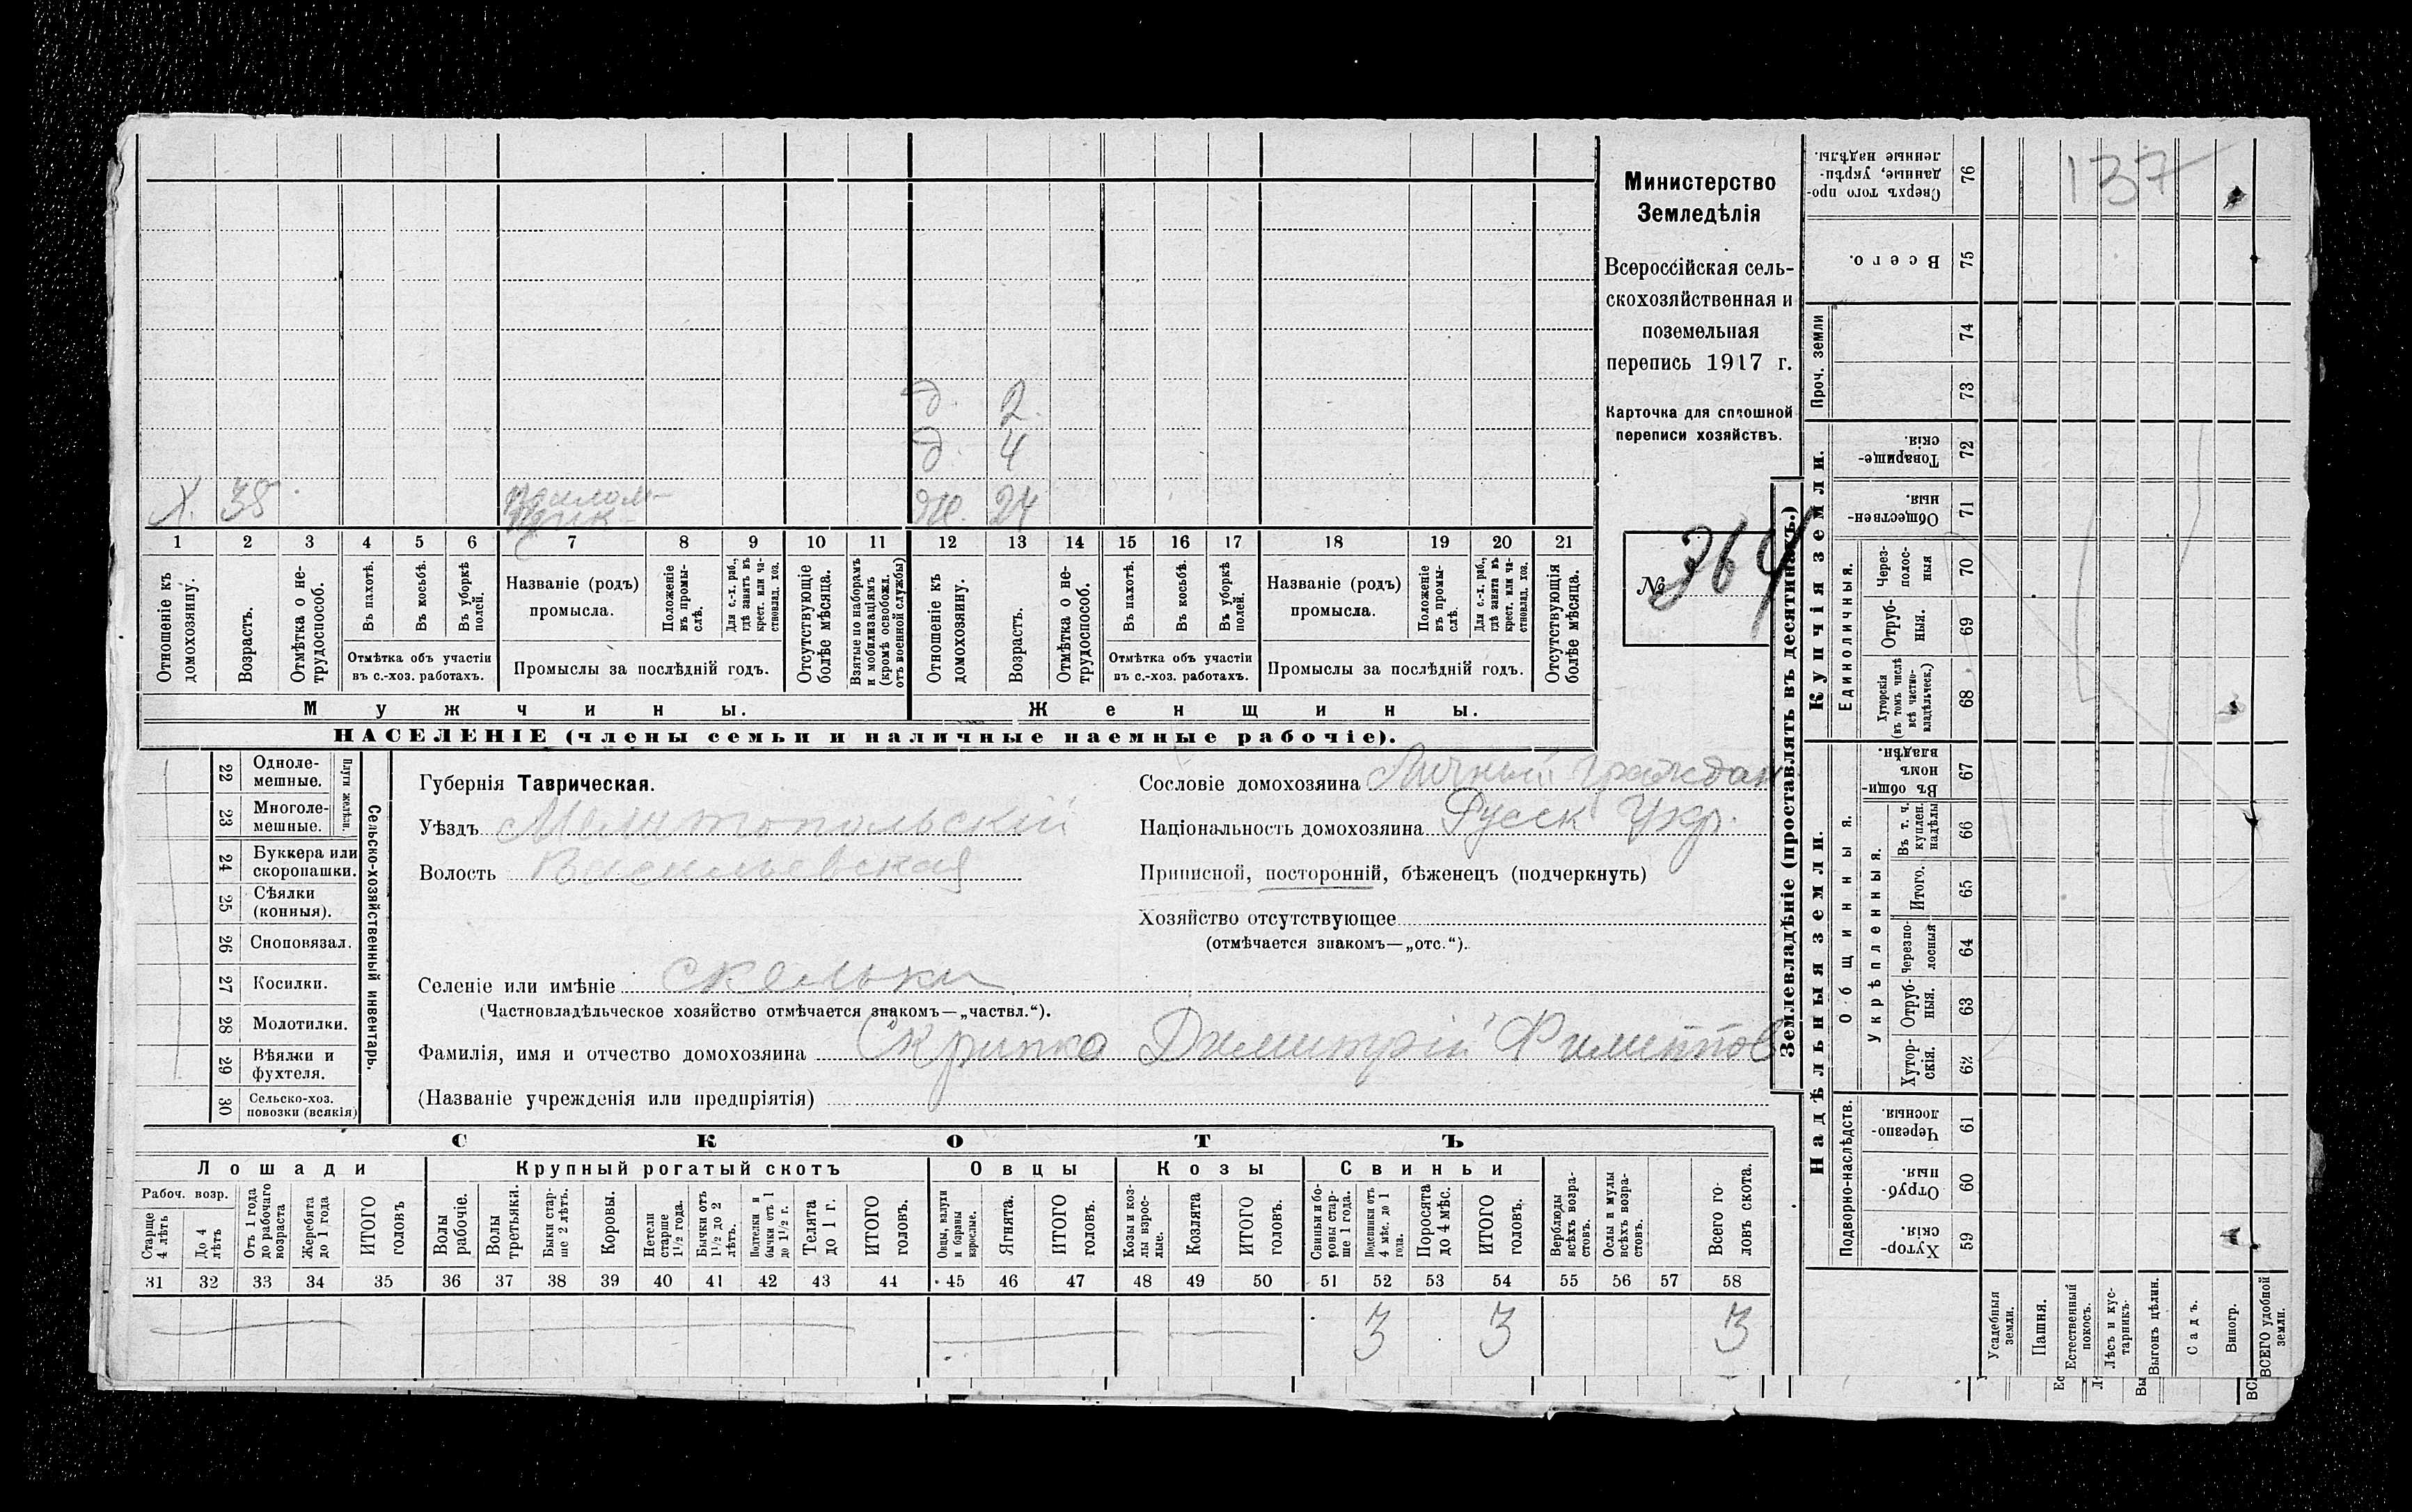 д. 2.
д. 4
Х. 38. ж. 24
1 2 3 4 5 6 7 8 9 10 11 12 13 14 15 16 17 18 19 20 21
Отношеніе къ домохозяину.
Возрастъ.
Отмѣтка о не-
трудоспособ.
Въ пахотѣ.
Въ косьбѣ.
Въ уборкѣ
полей.
Отмѣтка объ участіи
въ с.-хоз. работахъ.
Названіе (родъ)
промысла.
Положеніе
въ промы-
слѣ.
Для с.-х. раб.,
гдѣ занятъ въ
крест. или ча-
стновлад. хоз.
Промыслы за послѣдній годъ.
Отсутствующіе
болѣе мѣсяца.
Взятые по наборамъ
и мобилизаціямъ
(кромѣ освобожд.
отъ военной службы)
Отношеніе къ
домохозяину.
Возрастъ.
Отмѣтка о не-
трудоспособ.
Въ пахотѣ.
Въ косьбѣ.
Въ уборкѣ
полей.
Отмѣтка объ участіи
въ с.-хоз. работахъ.
Названіе (родъ)
промысла.
Положеніе
въ промы-
слѣ.
Для с.-х. раб.,
гдѣ занята въ
крест. или ча-
стновлад. хоз.
Промыслы за послѣдній годъ.
Отсутствующія
болѣе мѣсяца.
Мужчины.
Женщины.
НАСЕЛЕНІЕ (члены семьи и наличные наемные рабочіе).
Министерство
Земледѣлія
Всероссійская сель-
скохозяйственная и
поземельная
перепись 1917 г.
Карточка для сплошной
переписи хозяйствъ.
№ 364
22 Одноле-
мешные.
23 Многоле-
мешные.
Плуги желѣзн.
24 Буккера или
скоропашки.
25 Сѣялки
(конныя).
26 Сноповязал.
27 Косилки.
28 Молотилки.
29 Вѣялки и
фухтеля.
30 Сельско-хоз.
повозки (всякія)
Сельско-хозяйственный инвентарь.
Губернія Таврическая.
Уѣздъ Мелитопольскій
Волость Васильевская
Сословіе домохозяина Личный граждан
Національность домохозяина Русск Укр.
Приписной, посторонній, бѣженецъ (подчеркнуть)
Хозяйство отсутствующее
(отмѣчается знакомъ—„отс.“).
Селеніе или имѣніе Скельки
(Частновладѣльческое хозяйство отмѣчается знакомъ—„частвл.“).
Фамилія, имя и отчество домохозяина Скрипка Димитрій Филиппов
(Названіе учрежденія или предпріятія)
СКОТЪ
Лошади
Крупный рогатый скотъ
Овцы
Козы
Свиньи
Рабоч. возр.
Старше
4 лѣтъ
До 4
лѣтъ
Отъ 1 года
до рабочаго
возраста
Жеребята
до 1 года
ИТОГО
головъ
Волы
рабочіе.
Волы
третьяки.
Быки стар-
ше 2 лѣтъ.
Коровы.
Нетели
старше
1½ года.
Бычки отъ
1½ до 2
лѣтъ.
Подтелки и
бычки отъ 1
до 1½ г.
Телята
до 1 г.
ИТОГО
головъ.
Овцы, валухи
и бараны
взрослые.
Ягнята.
ИТОГО
головъ.
Козы и коз-
лы взрос-
лые.
Козлята
ИТОГО
головъ.
Свиньи и бо-
ровы стар-
ше 1 года.
Подсвинки отъ
4 мѣс. до 1
года.
Поросята
до 4 мѣс.
ИТОГО
головъ.
Верблюды
всѣхъ возра-
стовъ.
Ослы и мулы
всѣхъ возра-
стовъ.
Всего го-
ловъ скота.
31 32 33 34 35 36 37 38 39 40 41 42 43 44 45 46 47 48 49 50 51 52 53 54 55 56 57 58
3 3 3
Землевладѣніе (проставлять въ десятинахъ.)
Купчія земли.
Надѣльныя земли.
Сверхъ того про-
данные, укрѣп-
ленные надѣлы.
76
137
Всего.
75
Проч. земли
74
73
Товарище-
скія.
72
Обществен-
ныя.
71
Единоличныя.
Через-
полос-
ныя
70
Отруб-
ныя.
69
Хуторскія
(въ томъ числѣ
всѣ частно-
владѣльческ.)
68
Общинныя.
Въ общи-
номъ
владѣн.
67
Укрѣпленныя.
Въ т. ч.
куплен.
надѣлы
66
Итого.
65
Черезпо-
лосныя
64
Отруб-
ныя.
63
Хутор-
скія.
62
Подворно-наслѣдств.
Черезпо-
лосныя.
61
Отруб-
ныя.
60
Хутор-
скія.
59
Усадебныя
земли.
Пашня.
Естественный
покосъ.
Лѣсъ и кус-
тарникъ.
Выгонъ цѣлин.
Садъ.
Виногр.
ВСЕГО удобной
земли.